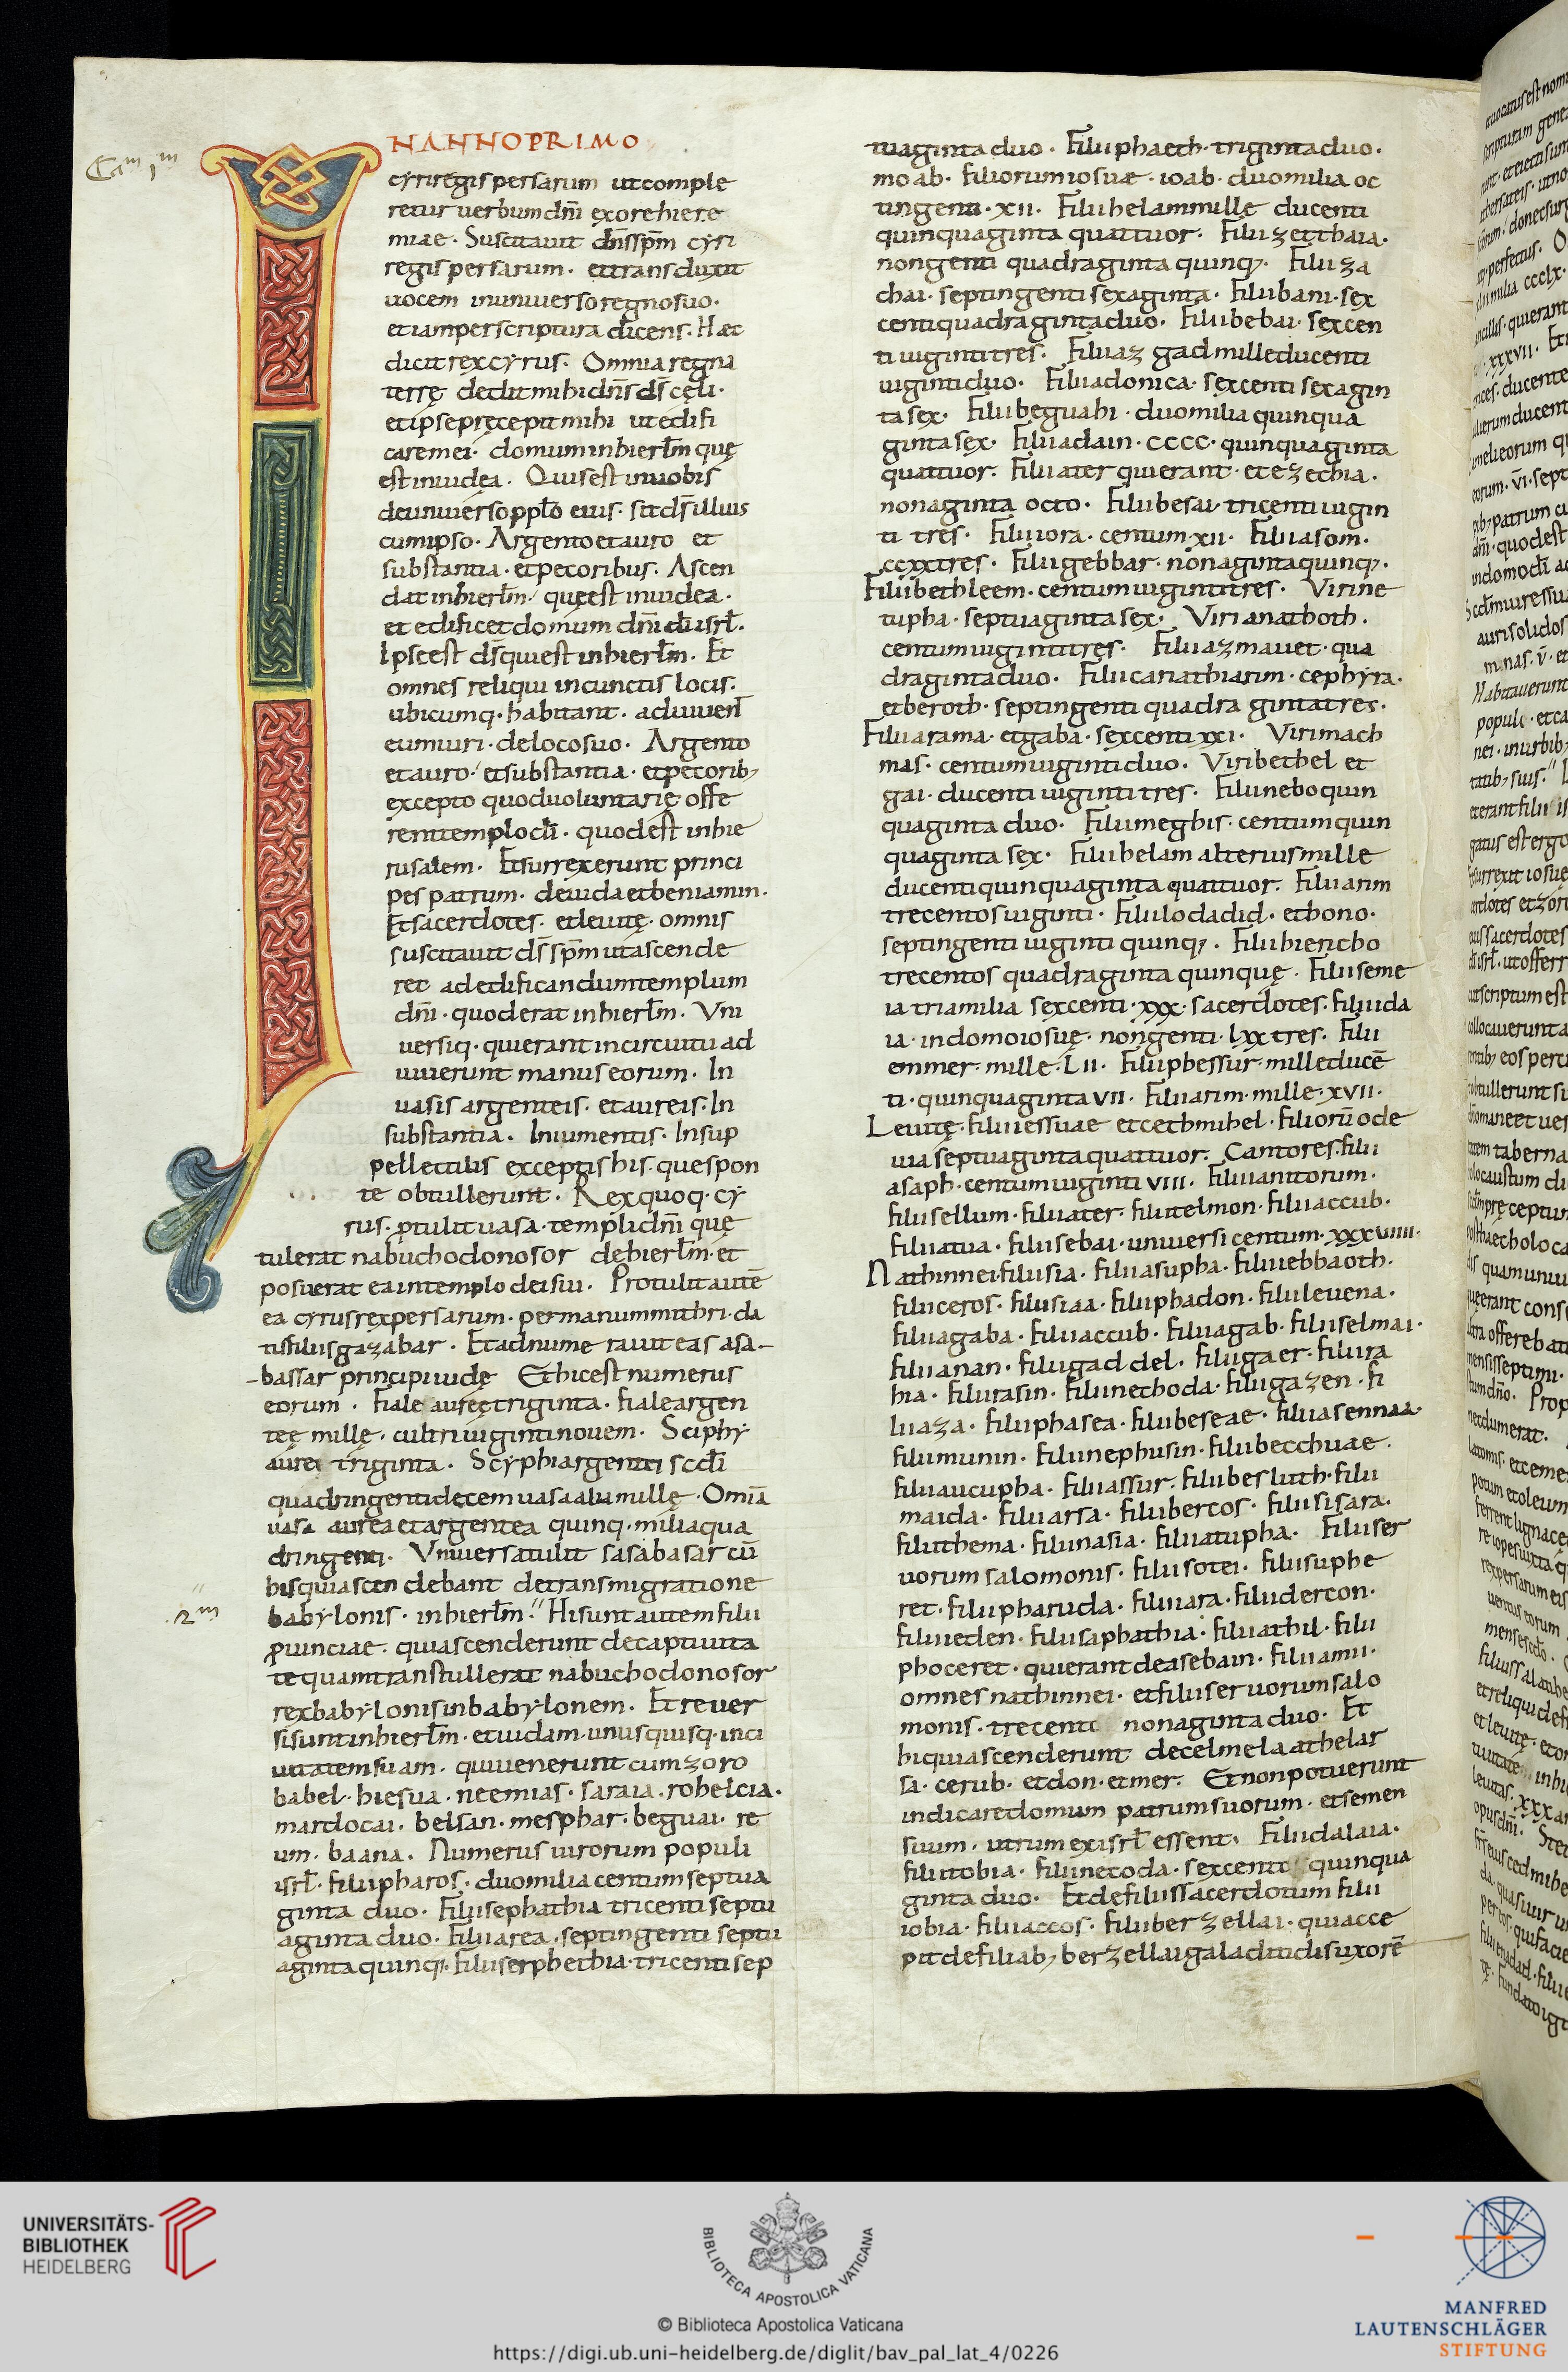 Cam 1m
INANNOPRIMO
cyri regis persarum ut comple
retur uerbum dn̄i ex ore hiere
miae. Suscitauit dn̄s sp̄m cyri
regis persarum. et transduxit
uocem in uniuerso regno suo.
etiam per scriptura dicens. Hæc
dicit rex cyrus. Omnia regna
terrę dedit mihi dn̄s ds̄ cęli.
et ipse pręcepit mihi ut edifi
carem ei. domum in hierl̄m quę
est in iudęa. Quis est in uobis
de uniuerso pplo eius. sit ds̄ illius
cum ipso. Argento et auro et
substantia. et pecoribus. Ascen
dat in hierl̄m. quę est in iudea.
et edificet domum dn̄i dī isrl̄.
Ipse est ds̄ qui est in hierl̄m. Et
omnes reliqui in cunctis locis.
ubicumq. habitant. adiuuen̄
eum uiri. de loco suo. Argento
et auro. et substantia. et pecorib;
excepto quod uoluntarię offe
rent templo dī. quod est in hie
rusalem. Et surrexerunt princi
pes patrum. de iuda et beniamin.
Et sacerdotes. et leuitę. omnis
suscitauit ds̄ sp̄m ut ascende
ret ad edificandum templum
dn̄i. quod erat in hierl̄m. Vni
uersiq. qui erant in circuitu ad
iuuerunt manus eorum. In
uasis argenteis. et aureis. In
substantia. In iumentis. In sup
pellectilis exceptis his. que spon
te obtullerunt. Rex quoq. cy
rus. ptulit uasa. templi dn̄i quę
tulerat nabuchodonosor de hierl̄m. et
posuerat ea in templo dei sui. Protulit autē
ea cyrus rex persarum. per manum mithri. da
tis filius gazabar. Et adnumerauit eas asa-
-bassar principi iudę Et hic est numerus
eorum. Fiale aureę triginta. fiale argen
teę millę. cultri uiginti nouem. Sciphy
aurei triginta. Scyphi argentei scd̄i
quadringenti decem uasa alia millę. Omīa
uasa aurea et argentea quinq. milia qua
dringenti. Vniuersa tulit sasabasar cū
his qui ascendebant de transmigratione
2m
babylonis. in hierl̄m. Hi sunt autem filii
puinciae. qui ascenderunt de captiuita
te quam transtullerat nabuchodonosor
rex babylonis in babylonem. Et reuer
si sunt in hierl̄m. et iudam. unusquisq. in ci
uitatem suam. qui uenerunt cum zoro
babel. hiesua. neemias. saraia. rohelcia.
mardocai. belsan. mesphar. beguai. re
um. baana. Numerus uirorum populi
isrl̄. filii pharos. duo milia centum septua
ginta duo. Filii sephathia tricenti septu
aginta duo. Filii area. septingenti septu
aginta quinq;. filii serphethia. tricenti sep
tuaginta duo. Filii phaeth. triginta duo.
moab. filiorum iosuæ. ioab. duo milia oc
tingenti. xii. Filii helam mille ducenti
quinquaginta quattuor. Filii zetthaia.
nongenti quadraginta quinq;. Filii za
chai. septingenti sexaginta. Filii bani. sex
centi quadraginta duo. Filii bebai. sexcen
ti uiginti tres. Filii azgad mille ducenti
uiginti duo. Filii adonica. sexcenti sexagin
ta sex. Filii beguahi. duo milia quinqua
ginta sex. Filii adain. cccc. quinquaginta
quattuor. Filii ater qui erant. et ezechia.
nonaginta octo. Filii besai. tricenti uigin
ti tres. Filii iora. centum. xii. Filii asom.
ccxxtres. Filii gebbar. nonaginta quinq;.
Filii bethleem. centum uiginti tres. Viri ne
tupha. septuaginta sex. Viri anathoth.
centum uiginti tres. Filii azmauet. qua
draginta duo. Filii cariathiarim. cephyra.
et beroth. septingenti quadraginta tres.
Filii arama. et gaba. sexcenti xxi. Viri mach
mas. centum uiginti duo. Viri bethel et
gai. ducenti uiginti tres. Filii nebo quin
quaginta duo. Filii megbis. centum quin
quaginta sex. Filii helam alterius mille
ducenti quinquaginta quattuor. Filii arim
trecentos uiginti. Filii lodadid. et hono.
septingenti uiginti quinq;. Filii hiericho
trecentos quadraginta quinquę. Filii seme
ia tria milia sexcenti. xxx. sacerdotes. filii ida
ia. in domo iosuę. nongenti. lxx tres. Filii
emmer. mille. Lii. Filii phessur. mille ducē
ti. quinquaginta vii. Filii arim. mille. xvii.
Leuitę. filii iessuae et cethmihel. filiorū ode
uia septuaginta quattuor. Cantores. filii
asaph. centum uiginti viii. Filii ianitorum.
filii sellum. filii ater. filii telmon. filii accub.
filii atiia. filii sebai. uniuersi centum. xxxviiii.
Nathinnei. filii sia. filii asupha. filii iebbaoth.
filii ceros. filii siaa. filii phadon. filii leuena.
filii agaba. filii accub. filii agab. filii selmai.
filii anan. filii gaddel. filii gaer. filii ra
hia. filii rasin. filii nechoda. filii gazen. fi
lii aza. filii phasea. filii beseae. filii asennaa.
filii munin. filii nephusin. filii becchuae.
filii aucupha. filii assur. filii besluth. filii
maida. filii arsa. filii bercos. filii sisara.
filii thema. filii nasia. filii atupha. Filii ser
uorum salomonis. filii sotei. filii suphe
ret. filii pharuda. filii iara. filii dercon.
filii ieden. filii saphathia. filii athil. filii
phoceret. qui erant de asebain. filii amii.
omnes nathinnei. et filii seruorum salo
monis. trecenti nonaginta duo. Et
hi qui ascenderunt decelmela athelar
sa. cerub. et don. et mer. Et non potuerunt
indicare domum patrum suorum. et semen
suum. utrum ex isrl̄ essent. Filii dalaia.
filii tobia. filii necoda. sexcenti quinqua
ginta duo. Et de filiis sacerdotum filii
iobia. filii accos. filii berzellai. qui acce
pit de filiab; berzellai galaditidis uxorē
UNIVERSITÄTS-
BIBLIOTHEK
HEIDELBERG
BIBLIOTECA APOSTOLICA VATICANA
© Biblioteca Apostolica Vaticana
https://digi.ub.uni-heidelberg.de/diglit/bav_pal_lat_4/0226
MANFRED
LAUTENSCHLÄGER
STIFTUNG